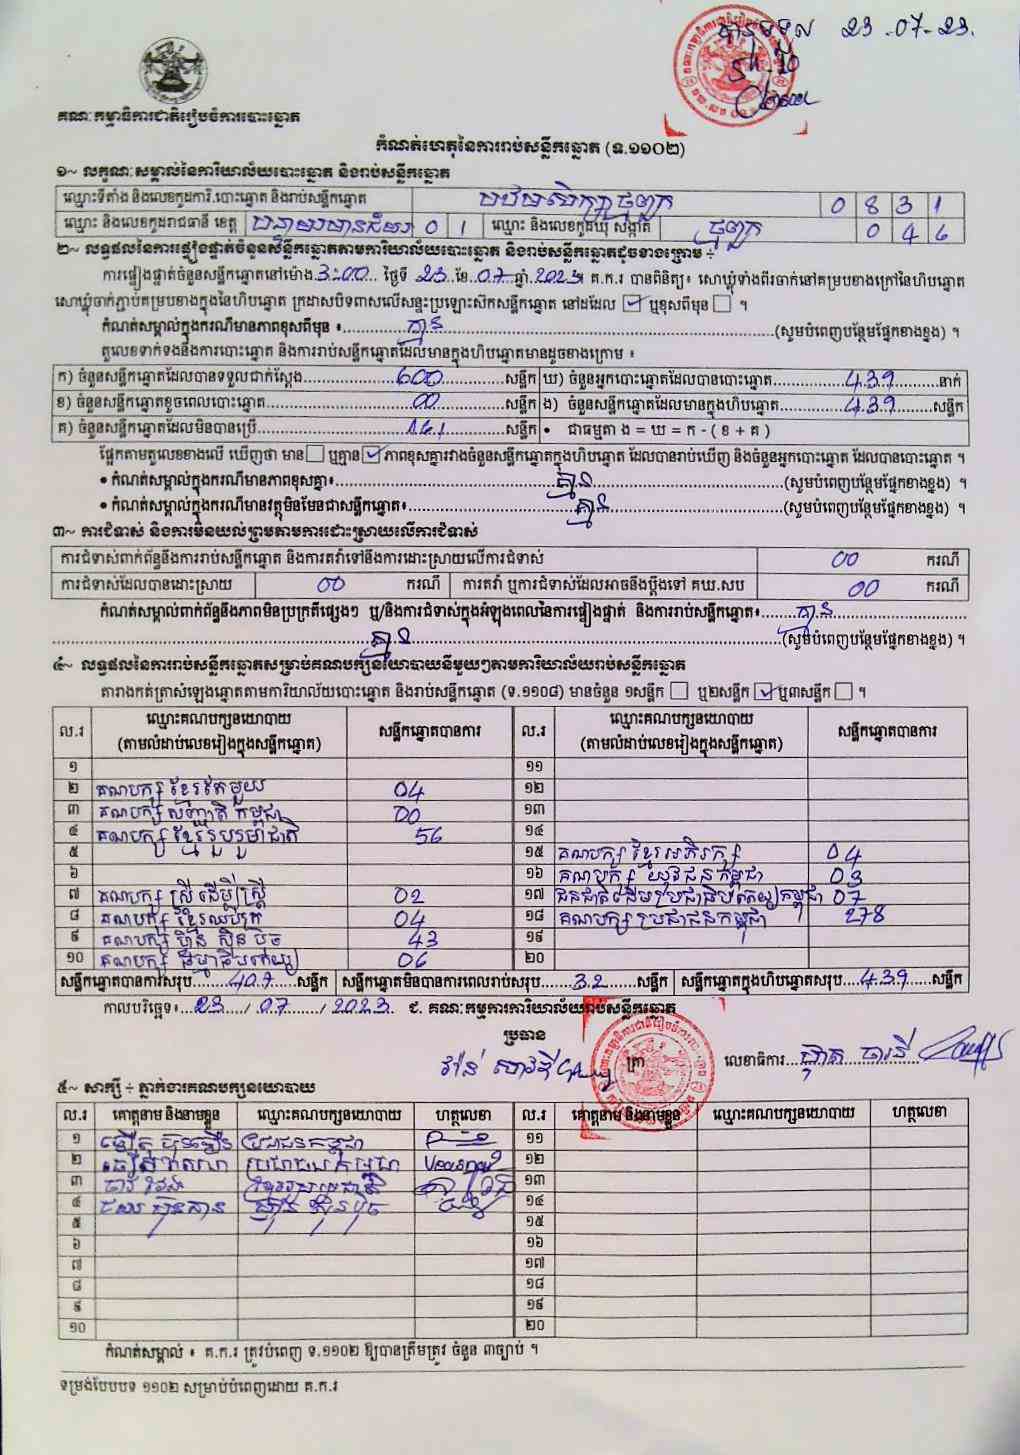 បានទទួល 23-07-23.
គណៈកម្មាធិការជាតិរៀបចំការបោះឆ្នោត
កំណត់ហេតុនៃការរាប់សន្លឹកឆ្នោត (ទ.១១០២)
១~ លក្ខណៈសម្គាល់នៃការិយាល័យបោះឆ្នោត និងរាប់សន្លឹកឆ្នោត
ឈ្មោះទីតាំង និងលេខកូដការិ.បោះឆ្នោត និងរាប់សន្លឹកឆ្នោត 0 8 3 1
ឈ្មោះ និងលេខកូដរាជធានី ខេត្ត បន្ទាយមានជ័យ 0 1 ឈ្មោះ និងលេខកូដឃុំ សង្កាត់ 0 4 6
២~ លទ្ធផលនៃការផ្ទៀងផ្ទាត់ចំនួនសន្លឹកឆ្នោតតាមការិយាល័យបោះឆ្នោត និងរាប់សន្លឹកឆ្នោតដូចខាងក្រោម ÷
ការផ្ទៀងផ្ទាត់ចំនួនសន្លឹកឆ្នោតនៅម៉ោង 3:00 ថ្ងៃទី 23 ខែ 07 ឆ្នាំ 2023។ គ.ក.រ បានពិនិត្យ៖ សោឃ្លុំទាំងពីរចាក់នៅគម្របខាងក្រៅនៃហិបឆ្នោត
សោឃ្លុំចាក់ភ្ជាប់គម្របខាងក្នុងនៃហិបឆ្នោត ក្រដាសបិទពាសលើសន្ទះប្រឡោះស៊ីកសន្លឹកឆ្នោត នៅដដែល ☑ ឬខុសពីមុន ☐ ។
កំណត់សម្គាល់ក្នុងករណីមានភាពខុសពីមុន ៖ គ្មាន (សូមបំពេញបន្ថែមផ្នែកខាងខ្នង) ។
តួលេខទាក់ទងនឹងការបោះឆ្នោត និងការរាប់សន្លឹកឆ្នោតដែលមានក្នុងហិបឆ្នោតមានដូចខាងក្រោម ៖
ក) ចំនួនសន្លឹកឆ្នោតដែលបានទទួលជាក់ស្តែង 600 សន្លឹក ឃ) ចំនួនអ្នកបោះឆ្នោតដែលបានបោះឆ្នោត 439 នាក់
ខ) ចំនួនសន្លឹកឆ្នោតខូចពេលបោះឆ្នោត 00 សន្លឹក ង) ចំនួនសន្លឹកឆ្នោតដែលមានក្នុងហិបឆ្នោត 439 សន្លឹក
គ) ចំនួនសន្លឹកឆ្នោតដែលមិនបានប្រើ 161 សន្លឹក • ជាធម្មតា ង = ឃ = ក - ( ខ + គ )
ផ្អែកតាមតួលេខខាងលើ ឃើញថា មាន ☐ ឬគ្មាន ☑ ភាពខុសគ្នារវាងចំនួនសន្លឹកឆ្នោតក្នុងហិបឆ្នោត ដែលបានរាប់ឃើញ និងចំនួនអ្នកបោះឆ្នោត ដែលបានបោះឆ្នោត ។
• កំណត់សម្គាល់ក្នុងករណីមានភាពខុសគ្នា៖ គ្មាន (សូមបំពេញបន្ថែមផ្នែកខាងខ្នង) ។
• កំណត់សម្គាល់ក្នុងករណីមានវត្ថុមិនមែនជាសន្លឹកឆ្នោត៖ គ្មាន (សូមបំពេញបន្ថែមផ្នែកខាងខ្នង) ។
៣~ ការជំទាស់ និងការមិនយល់ព្រមតាមការដោះស្រាយលើការជំទាស់
ការជំទាស់ពាក់ព័ន្ធនឹងការរាប់សន្លឹកឆ្នោត និងការតវ៉ាទៅនឹងការដោះស្រាយលើការជំទាស់ 00 ករណី
ការជំទាស់ដែលបានដោះស្រាយ 00 ករណី ការតវ៉ា ឬការជំទាស់ដែលអាចនឹងប្តឹងទៅ គឃ.សប 00 ករណី
កំណត់សម្គាល់ពាក់ព័ន្ធនឹងភាពមិនប្រក្រតីផ្សេងៗ ឬ/និងការជំទាស់ក្នុងអំឡុងពេលនៃការផ្ទៀងផ្ទាត់ និងការរាប់សន្លឹកឆ្នោត៖ គ្មាន
គ្មាន (សូមបំពេញបន្ថែមផ្នែកខាងខ្នង) ។
៤~ លទ្ធផលនៃការរាប់សន្លឹកឆ្នោតសម្រាប់គណបក្សនយោបាយនីមួយៗតាមការិយាល័យរាប់សន្លឹកឆ្នោត
តារាងកត់ត្រាសំឡេងឆ្នោតតាមការិយាល័យបោះឆ្នោត និងរាប់សន្លឹកឆ្នោត (ទ.១១០៨) មានចំនួន ១សន្លឹក ☐ ឬ២សន្លឹក ☑ ឬ៣សន្លឹក ☐ ។
ល.រ ឈ្មោះគណបក្សនយោបាយ (តាមលំដាប់លេខរៀងក្នុងសន្លឹកឆ្នោត) សន្លឹកឆ្នោតបានការ ល.រ ឈ្មោះគណបក្សនយោបាយ (តាមលំដាប់លេខរៀងក្នុងសន្លឹកឆ្នោត) សន្លឹកឆ្នោតបានការ
១ ១១
២ គណបក្ស ខ្មែរតែមួយ 04 ១២
៣ គណបក្ស សញ្ជាតិ កម្ពុជា 00 ១៣
៤ គណបក្ស ខ្មែររួបរួមជាតិ 56 ១៤
៥ ១៥ គណបក្ស ខ្មែរអភិរក្ស 04
៦ ១៦ គណបក្ស យុវជនកម្ពុជា 03
៧ គណបក្ស ស្រី ដើម្បីស្ត្រី 02 ១៧ ជនជាតិដើមប្រជាធិបតេយ្យកម្ពុជា 07
៨ គណបក្ស ខ្មែរឈប់ក្រ 04 ១៨ គណបក្ស ប្រជាជនកម្ពុជា 278
៩ គណបក្ស ហ៊្វុន ស៊ិន ប៉ិច 43 ១៩
១០ គណបក្ស ធម្មាធិបតេយ្យ 06 ២០
សន្លឹកឆ្នោតបានការសរុប 407 សន្លឹក សន្លឹកឆ្នោតមិនបានការពេលរាប់សរុប 32 សន្លឹក សន្លឹកឆ្នោតក្នុងហិបឆ្នោតសរុប 439 សន្លឹក
កាលបរិច្ឆេទ៖ 23 / 07 / 2023 ជ. គណៈកម្មការការិយាល័យរាប់សន្លឹកឆ្នោត
ប្រធាន
ត្រា លេខាធិការ
៥~ សាក្សី ÷ ភ្នាក់ងារគណបក្សនយោបាយ
ល.រ គោត្តនាម និងនាមខ្លួន ឈ្មោះគណបក្សនយោបាយ ហត្ថលេខា ល.រ គោត្តនាម និងនាមខ្លួន ឈ្មោះគណបក្សនយោបាយ ហត្ថលេខា
១ ប្រជាជនកម្ពុជា ១១
២ ប្រជាជនកម្ពុជា ១២
៣ ១៣
៤ ហ៊្វុន ស៊ិន ប៉ិច ១៤
៥ ១៥
៦ ១៦
៧ ១៧
៨ ១៨
៩ ១៩
១០ ២០
កំណត់សម្គាល់ ៖ គ.ក.រ ត្រូវបំពេញ ទ.១១០២ ឱ្យបានត្រឹមត្រូវ ចំនួន ៣ច្បាប់ ។
ទម្រង់បែបបទ ១១០២ សម្រាប់បំពេញដោយ គ.ក.រ